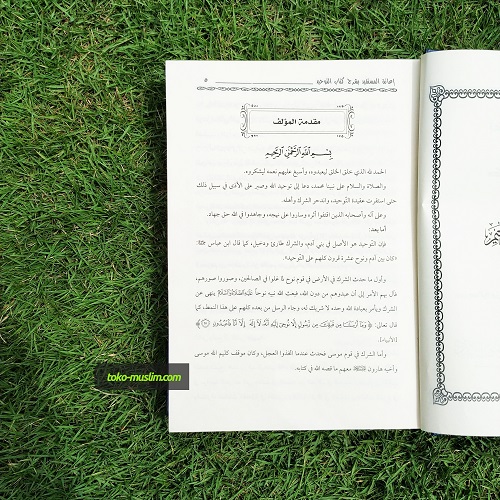 إعانة المستفيد بشرح كتاب التوحيد ٥
مقدمة المؤلف
بسم الله الرحمن الرحيم
الحمد لله الذي خلق الخلق ليعبدوه، وأسبغ عليهم نعمه ليشكروه.
والصلاة والسلام على نبينا محمد، دعا إلى توحيد الله وصبر على الأذى في سبيل ذلك
حتى استقرت عقيدة التوحيد، واندحر الشرك وأهله.
وعلى آله وأصحابه الذين اقتفوا أثره وساروا على نهجه، وجاهدوا في الله حق جهاد.
أما بعد:
فإن التوحيد هو الأصل في بني آدم، والشرك طارئ ودخيل، كما قال ابن عباس
«كان بين آدم ونوح عشرة قرون كلهم على التوحيد».
وأول ما حدث الشرك في الأرض في قوم نوح لما غلوا في الصالحين، وصوروا صورهم،
قال بهم الأمر إلى أن عبدوهم من دون الله، فبعث الله نبيه نوحاً عليه الصلاة والسلام ينهى عن
الشرك ويأمر بعبادة الله وحده لا شريك له، وجاء الرسل من بعده كلهم على هذا النمط، كما
قال تعالى: ﴿وَمَا أَرْسَلْنَا مِن قَبْلِكَ مِن رَّسُولٍ إِلَّا نُوحِي إِلَيْهِ أَنَّهُ لَا إِلَهَ إِلَّا أَنَا فَاعْبُدُونِ﴾
[الأنبياء].
وأما الشرك في قوم موسى فحدث عندما اتخذوا العجل، وكان موقف كليم الله موسى
وأخيه هارون معهم ما قصه الله في كتابه.
toko-muslim.com